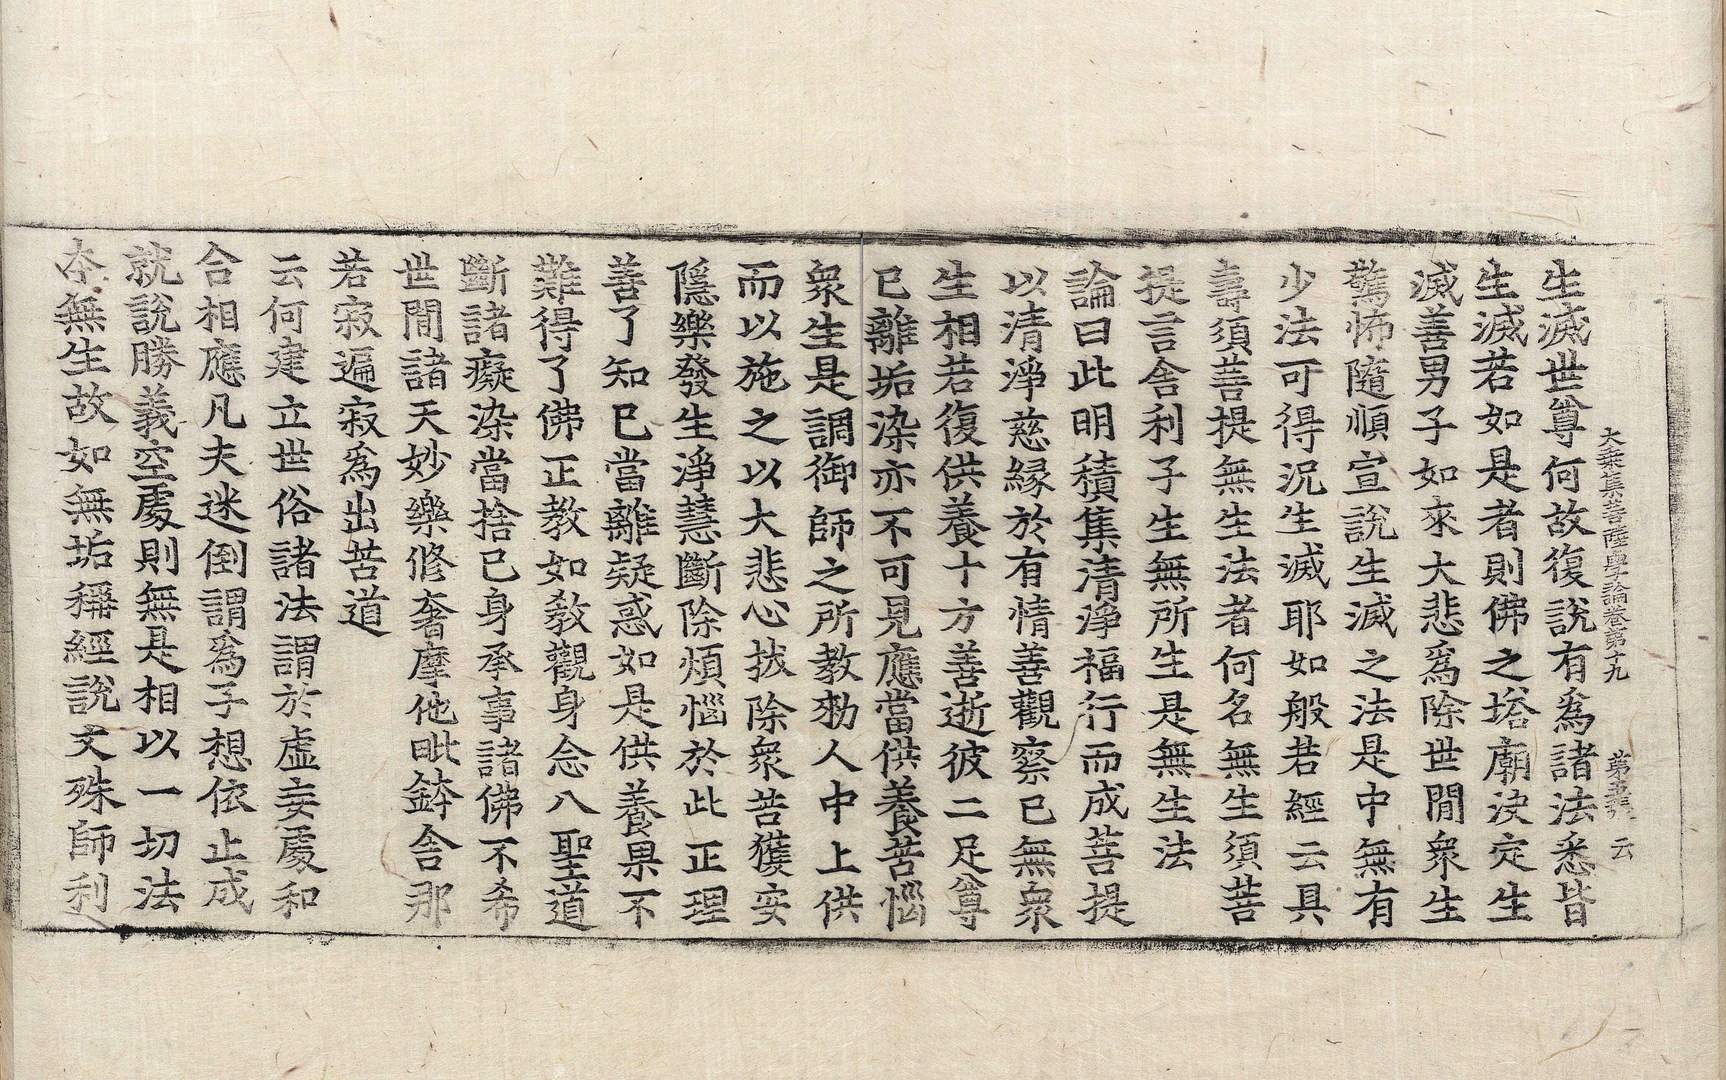 大乘集菩薩學論卷第十九 第五張 云
生滅世尊何故復說有爲諸法悉皆
生滅若如是者則佛之塔廟決定生
滅善男子如來大悲爲除世間衆生
驚怖隨順宣說生滅之法是中無有
少法可得況生滅耶如般若經云具
壽須菩提無生法者何名無生須菩
提言舍利子生無所生是無生法
論曰此明積集清淨福行而成菩提
以清淨慈緣於有情善觀察已無衆
生相若復供養十方善逝彼二足尊
已離垢染亦不可見應當供養苦惱
衆生是調御師之所教勑人中上供
而以施之以大悲心拔除衆苦獲安
隱樂發生淨慧斷除煩惱於此正理
善了知已當離疑惑如是供養果不
難得了佛正教如教觀身念八聖道
斷諸癡染當捨已身承事諸佛不希
世間諸天妙樂修奢摩他毗鉢舍那
若寂遍寂爲出苦道
云何建立世俗諸法謂於虛妄處和
合相應凡夫迷倒謂爲子想依止成
就說勝義空處則無是相以一切法
本無生故如無垢稱經說文殊師利